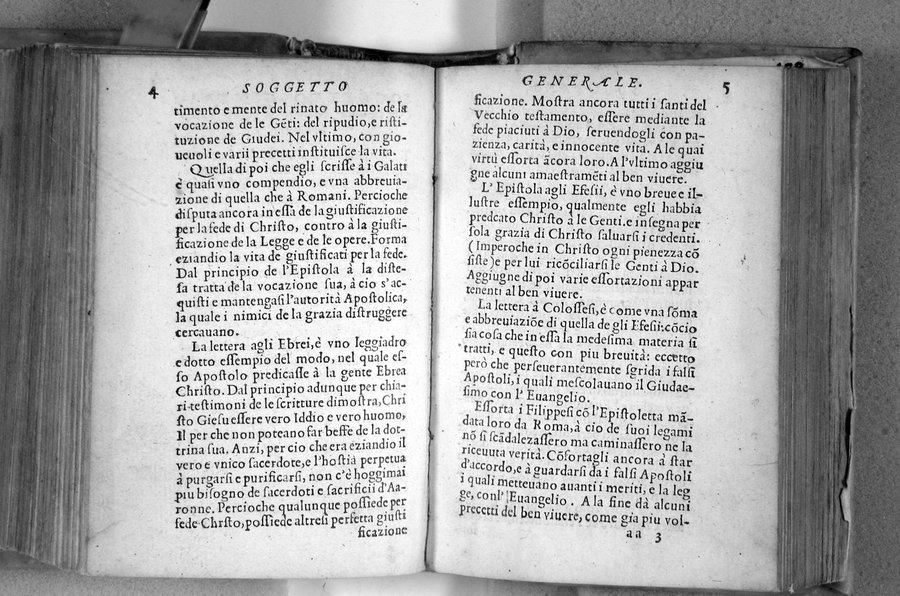 4 SOGGETTO
timento e mente del rinato huomo: de la
vocazione de le Gẽti: del ripudio, e risti-
tuzione de Giudei. Nel vltimo, con gio-
ueuoli e varii precetti instituisce la vita.
Quella di poi che egli scrisse à i Galati
è quasi vno compendio, e vna abbreuia-
zione di quella che à Romani. Percioche
disputa ancora in essa de la giustificazione
per la fede di Christo, contro à la giusti-
ficazione de la Legge e de le opere. Forma
eziandio la vita de giustificati per la fede.
Dal principio de l'Epistola à la diste-
sa tratta de la vocazione sua, à cio s'ac-
quisti e mantengasi l'autorità Apostolica,
la quale i nimici de la grazia distruggere
cercauano.
La lettera agli Ebrei, è vno leggiadro
e dotto essempio del modo, nel quale es-
so Apostolo predicasse à la gente Ebrea
Christo. Dal principio adunque per chia-
ri testimoni de le scritture dimostra, Chri
sto Giesu essere vero Iddio e vero huomo,
Il per che non poteano far beffe de la dot-
trina sua. Anzi, per cio che era eziandio il
vero e vnico sacerdote, e l'hostia perpetua
à purgarsi e purificarsi, non c'è hoggimai
piu bisogno de sacerdoti e sacrificii d'Aa-
ronne. Percioche qualunque possiede per
fede Chrsto, possiede altresi perfetta giusti
ficazione
GENERALE. 5
ficazione. Mostra ancora tutti i santi del
Vecchio testamento, essere mediante la
fede piaciuti à Dio, seruendogli con pa-
zienza, carità, e innocente vita. A le quai
virtù essorta ãcora loro. A l'vltimo aggiu
gne alcuni amaestramẽti al ben viuere.
L' Epistola agli Efesii, è vno breue e il-
lustre essempio, qualmente egli habbia
predcato Christo à le Genti. e insegna per
sola grazia di Christo saluarsi i credenti.
(Imperoche in Christo ogni pienezza cõ
siste) e per lui ricõciliarsi le Genti à Dio.
Aggiugne di poi varie essortazioni appar
tenenti al ben viuere.
La lettera à Colossesi, è come vna sõma
e abbreuiaziõe di quella de gli Efesii: cõcio
sia cosa che in essa la medesima materia si
tratti, e questo con piu breuità: eccetto
però che perseuerantemente sgrida i falsi
Apostoli, i quali mescolauano il Giudae-
simo con l' Euangelio.
Essorta i Filippesi cõ l'Epistoletta mã-
data loro da Roma, à cio de suoi legami
nõ si scãdalezassero ma caminassero ne la
riceuuta verità. Cõfortagli ancora à star
d'accordo, e à guardarsi da i falsi Apostoli
i quali metteuano auanti i meriti, e la leg
ge, con l' Euangelio. A la fine dà alcuni
precetti del ben viuere, come gia piu vol-
aa 3